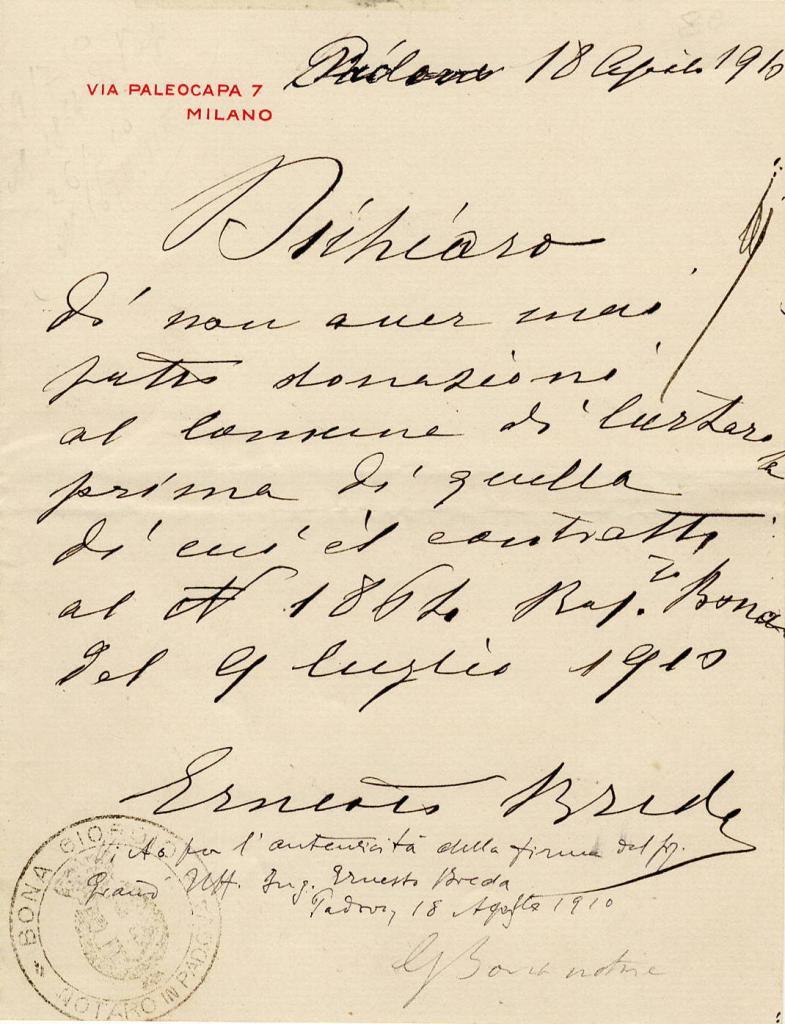 VIA PALEOCAPA 7
MILANO
Padova 18 1910
Dichiaro
di non aver mai
fatto donazioni
al Comune di Curtaro
lo
prima di quella
di cui il contratto
al N 1864 Rep. Bona
del 9 luglio 1910
Ernesto Breda
per l'autenticità della firma del
Grand' Uff. Ing. Ernesto Breda
Padova, 18 Agosto 1910
G Bona notaio
BONA GIORGIO
NOTARO IN PADOVA